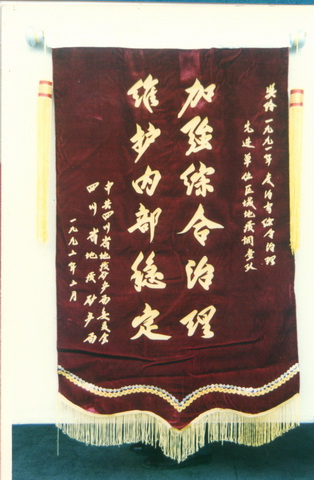 奖给一九九一年度治安综合治理
先进单位区域地质调查队
加强综合治理
维护内部稳定
中共四川省地质矿产局委员会
四川省地质矿产局
一九九二年二月